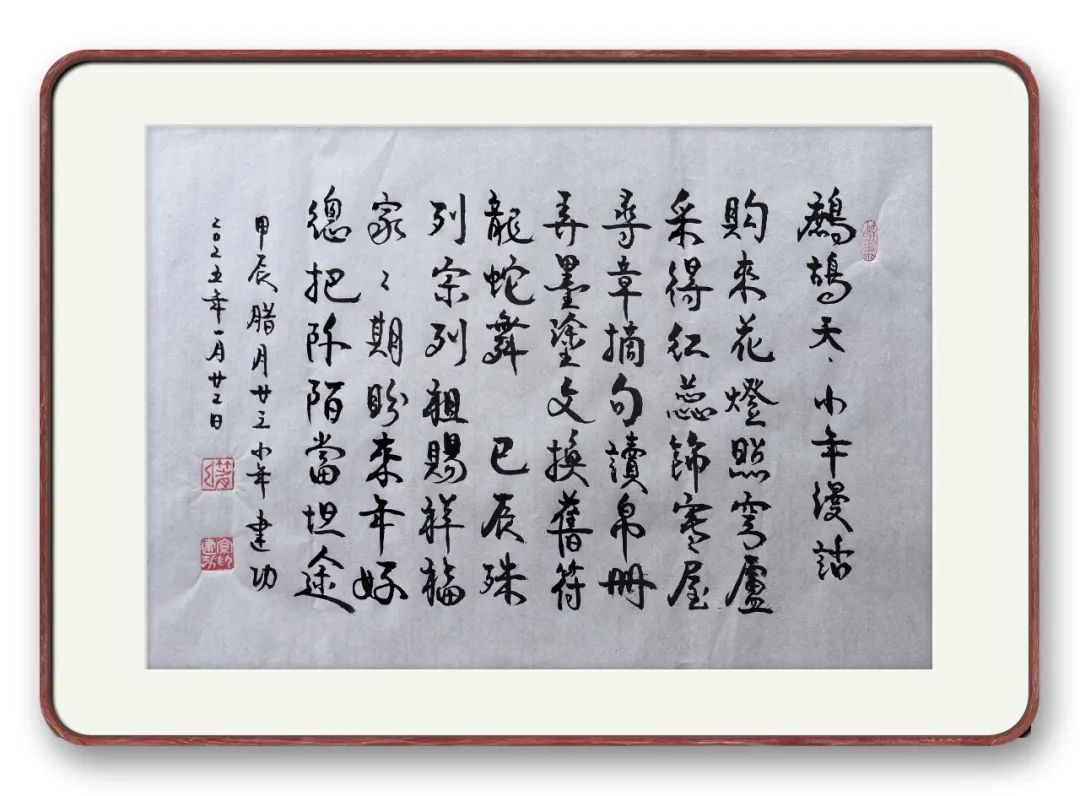 鷓鴣天、小年漫話
購來花燈照穹廬
采得红蕊飾寒屋
尋章摘句讀帛冊
弄墨塗文換舊符
龍蛇舞 巳辰殊
列宗列祖賜祥福
家〻期盼來年好
總把阡陌當坦途
甲辰腊月廿三小年建功
二〇二五年一月廿二日